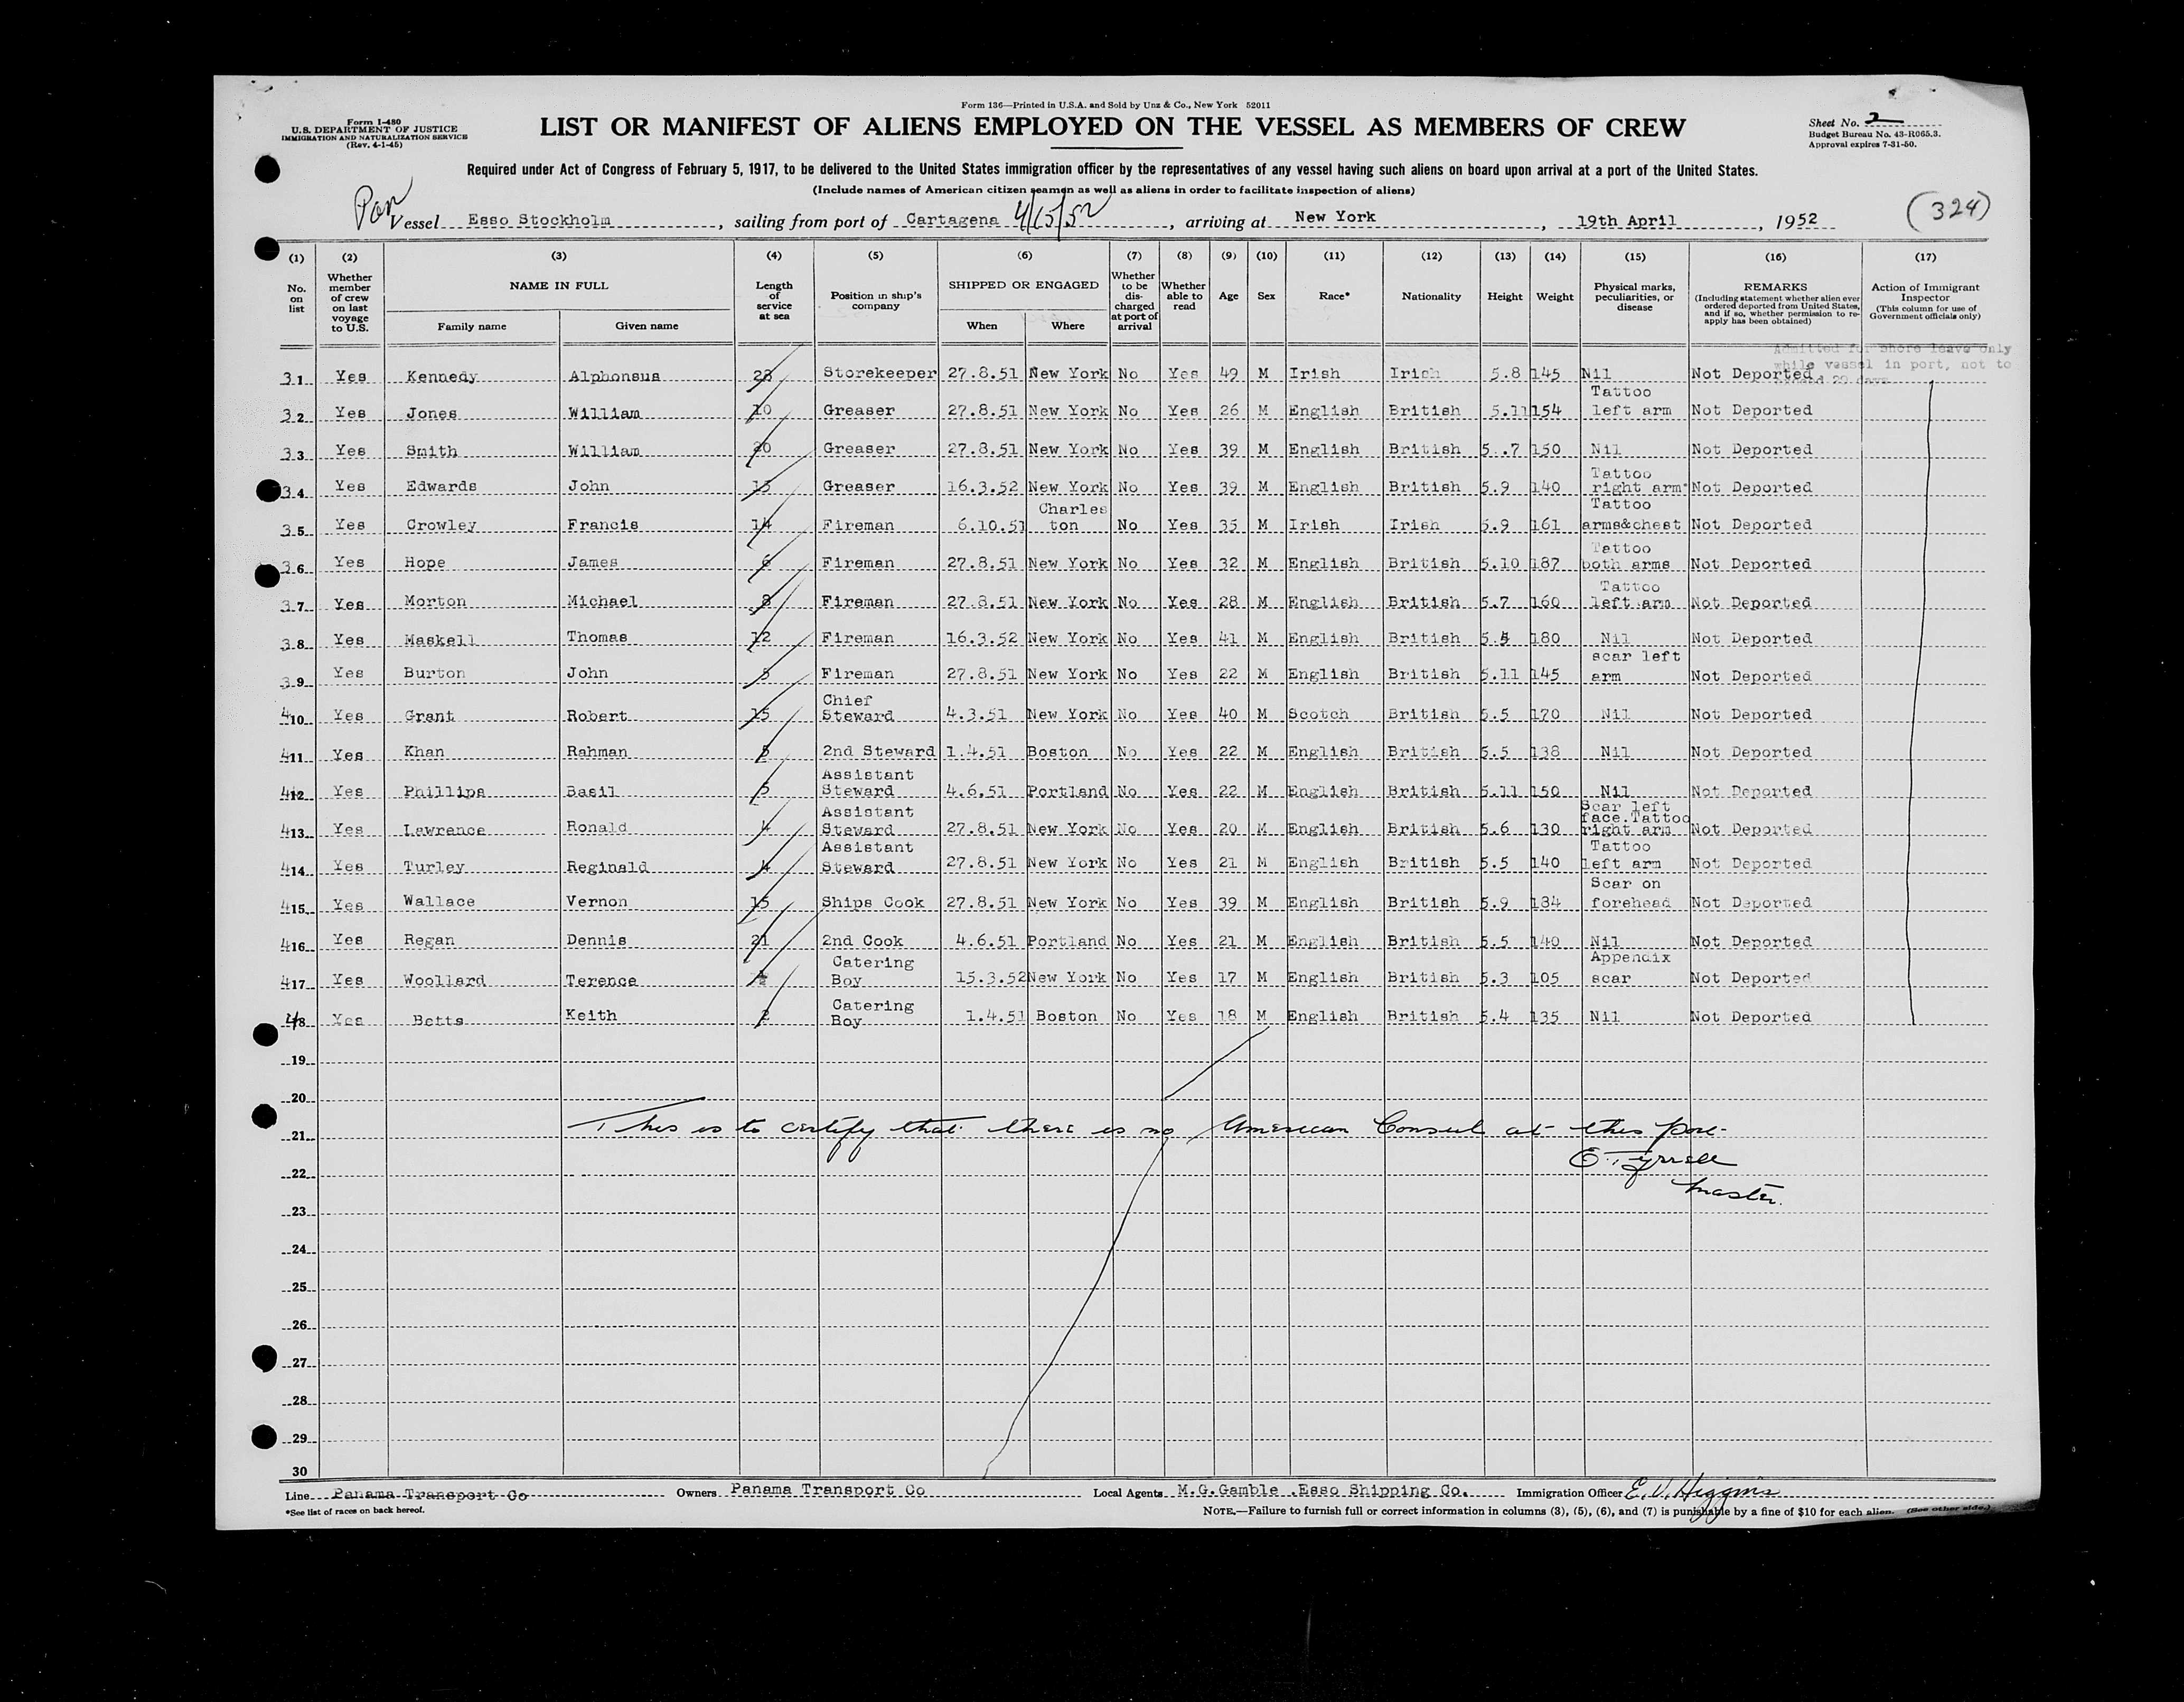 Form 136—Printed in U.S.A. and Sold by Unz & Co., New York 52011
Form I-480
U.S. DEPARTMENT OF JUSTICE
IMMIGRATION AND NATURALIZATION SERVICE
(Rev. 4-1-45)
LIST OR MANIFEST OF ALIENS EMPLOYED ON THE VESSEL AS MEMBERS OF CREW
Sheet No. 2
Budget Bureau No. 43-R065.3.
Approval expires 7-31-50.
Required under Act of Congress of February 5, 1917, to be delivered to the United States immigration officer by the representatives of any vessel having such aliens on board upon arrival at a port of the United States.
(Include names of American citizen seamen as well as aliens in order to facilitate inspection of aliens)
Pan
Vessel Esso Stockholm, sailing from port of Cartagena 4/15/52, arriving at New York, 19th April, 1952
(324)
(1) (2) (3) (4) (5) (6) (7) (8) (9) (10) (11) (12) (13) (14) (15) (16) (17)
No. on list
Whether member of crew on last voyage to U.S.
NAME IN FULL
Family name Given name
Length of service at sea
Position in ship's company
SHIPPED OR ENGAGED
When Where
Whether to be discharged at port of arrival
Whether able to read
Age
Sex
Race*
Nationality
Height
Weight
Physical marks, peculiarities, or disease
REMARKS
(Including statement whether alien ever ordered deported from United States, and if so, whether permission to re-apply has been obtained)
Action of Immigrant Inspector
(This column for use of Government officials only)
Admitted for shore leave only
while vessel in port, not to
exceed 29 days
31 Yes Kennedy Alphonsus 28 Storekeeper 27.8.51 New York No Yes 49 M Irish Irish 5.8 145 Nil Not Deported
32 Yes Jones William 10 Greaser 27.8.51 New York No Yes 26 M English British 5.11 154 Tattoo left arm Not Deported
33 Yes Smith William 20 Greaser 27.8.51 New York No Yes 39 M English British 5.7 150 Nil Not Deported
34 Yes Edwards John 13 Greaser 16.3.52 New York No Yes 39 M English British 5.9 140 Tattoo right arm Not Deported
35 Yes Crowley Francis 14 Fireman 6.10.51 Charleston No Yes 35 M Irish Irish 5.9 161 Tattoo arms&chest Not Deported
36 Yes Hope James 6 Fireman 27.8.51 New York No Yes 32 M English British 5.10 187 Tattoo both arms Not Deported
37 Yes Morton Michael 8 Fireman 27.8.51 New York No Yes 28 M English British 5.7 160 Tattoo left arm Not Deported
38 Yes Maskell Thomas 12 Fireman 16.3.52 New York No Yes 41 M English British 5.5 180 Nil Not Deported
39 Yes Burton John 5 Fireman 27.8.51 New York No Yes 22 M English British 5.11 145 scar left arm Not Deported
410 Yes Grant Robert 15 Chief Steward 4.3.51 New York No Yes 40 M Scotch British 5.5 170 Nil Not Deported
411 Yes Khan Rahman 5 2nd Steward 1.4.51 Boston No Yes 22 M English British 5.5 138 Nil Not Deported
412 Yes Phillips Basil 5 Assistant Steward 4.6.51 Portland No Yes 22 M English British 5.11 150 Nil Not Deported
413 Yes Lawrence Ronald 4 Assistant Steward 27.8.51 New York No Yes 20 M English British 5.6 130 Scar left face.Tattoo right arm Not Deported
414 Yes Turley Reginald 4 Assistant Steward 27.8.51 New York No Yes 21 M English British 5.5 140 Tattoo left arm Not Deported
415 Yes Wallace Vernon 15 Ships Cook 27.8.51 New York No Yes 39 M English British 5.9 184 Scar on forehead Not Deported
416 Yes Regan Dennis 21 2nd Cook 4.6.51 Portland No Yes 21 M English British 5.5 140 Nil Not Deported
417 Yes Woollard Terence Catering Boy 15.3.52 New York No Yes 17 M English British 5.3 105 Appendix scar Not Deported
48 Yes Betts Keith 2 Catering Boy 1.4.51 Boston No Yes 18 M English British 5.4 135 Nil Not Deported
19
20
21 This is to certify that there is no American Consul at this port.
22 E. Tyrrell
Master.
23
24
25
26
27
28
29
30
Line Panama Transport Co Owners Panama Transport Co Local Agents M.G.Gamble .Esso Shipping Co. Immigration Officer E. V. Higgins
*See list of races on back hereof.
NOTE.—Failure to furnish full or correct information in columns (3), (5), (6), and (7) is punishable by a fine of $10 for each alien. (See other side.)